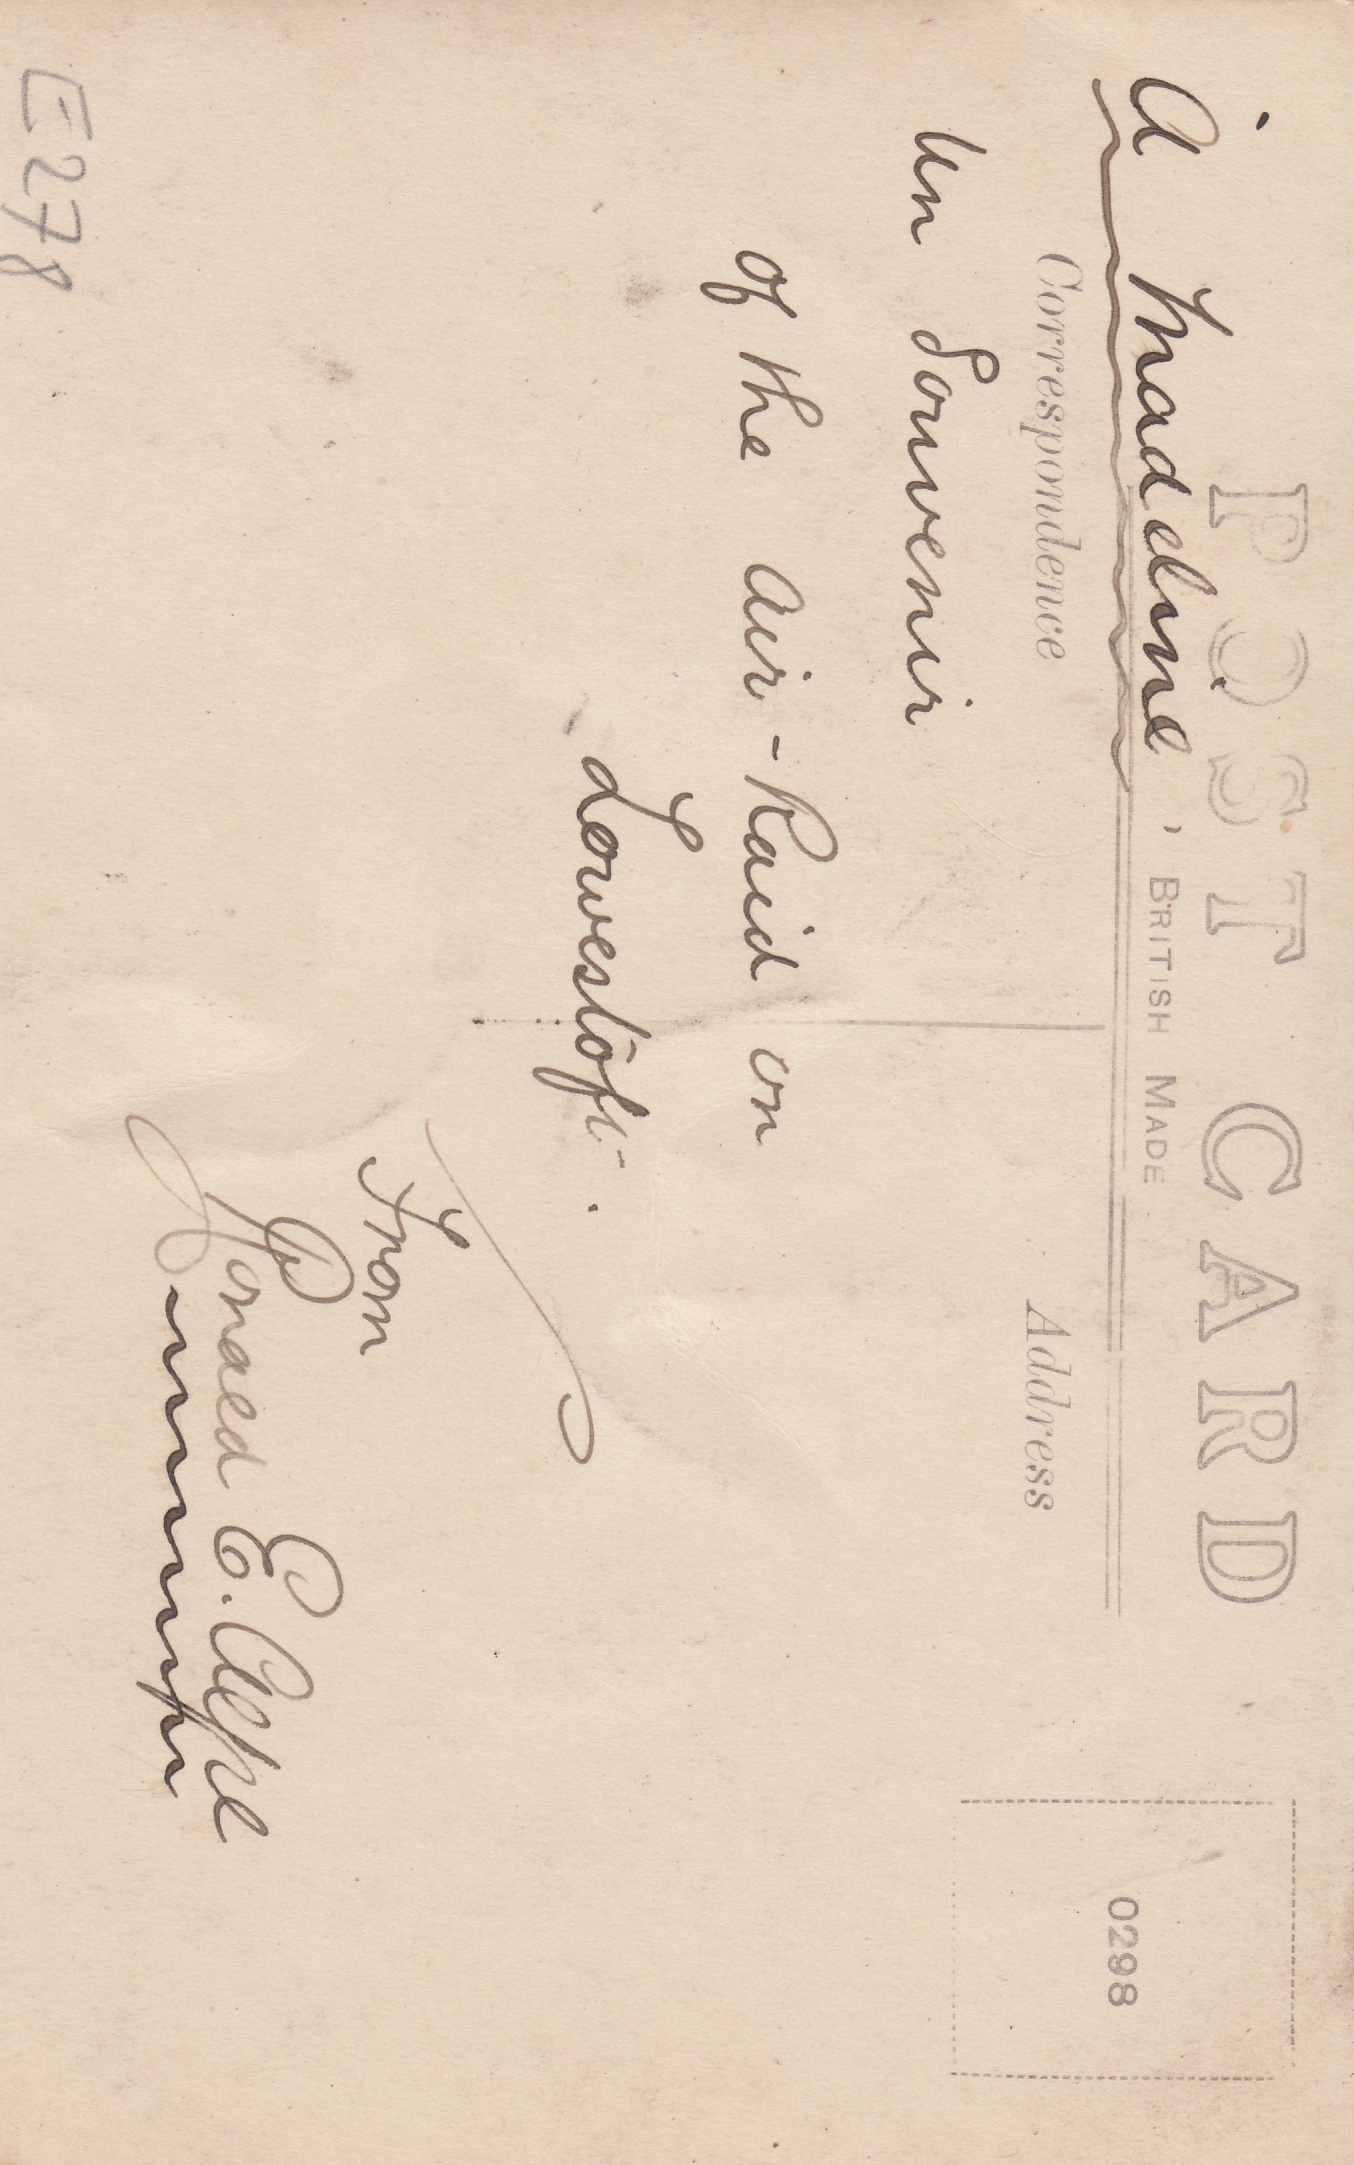 POST CARD
BRITISH MADE
À Madeline,
Correspondence
Address
Un Souvenir
of the Air-Raid on
Lowestoft.
From
E.
0298
E278